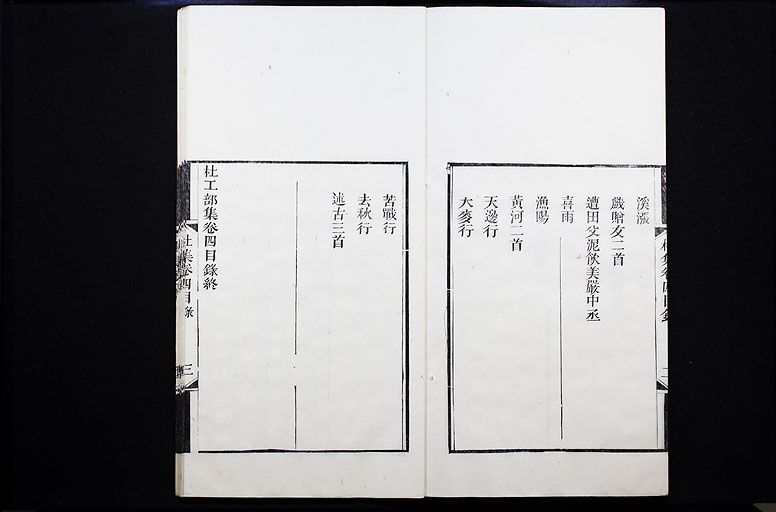 溪漲
戲贈友二首
遭田父泥飲美嚴中丞
喜雨
漁陽
黃河二首
天邊行
大麥行
苦戰行
去秋行
述古三首
杜工部集卷四目錄終
杜集卷四目錄
三